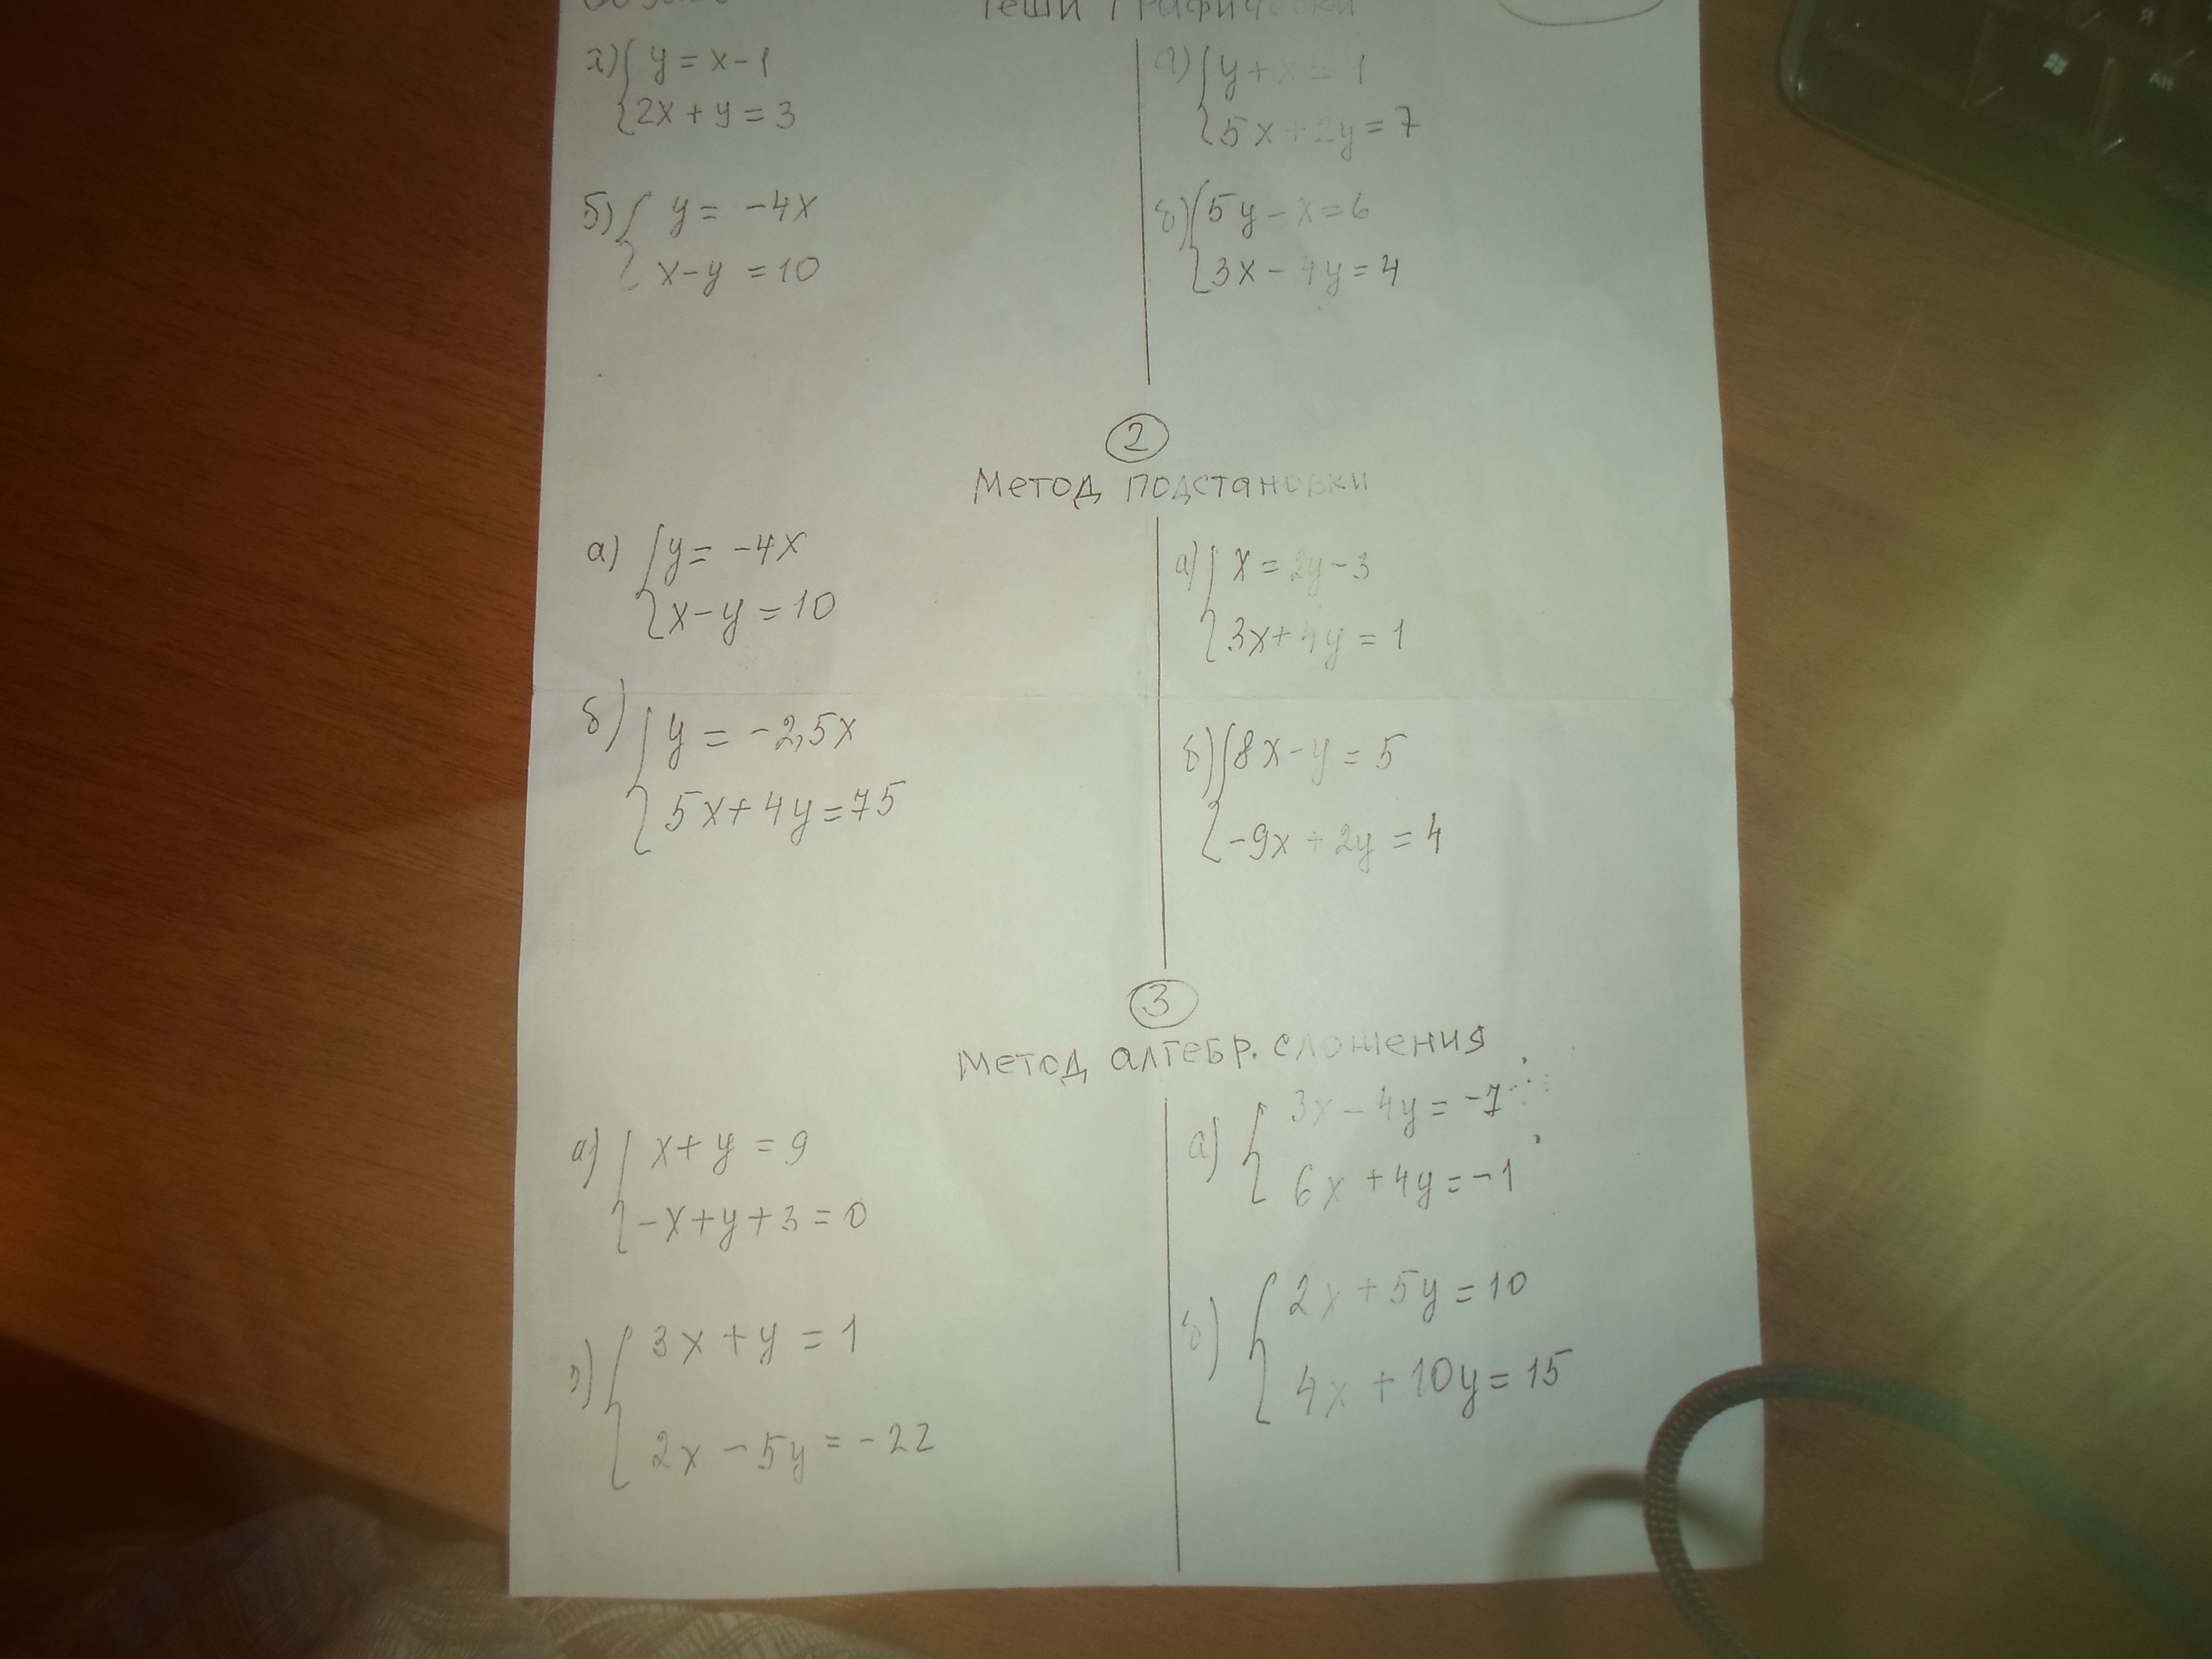 Реши графически
а) { y = x - 1
2x + y = 3
б) { y = -4x
x - y = 10
а) { y + x = 1
5x + 2y = 7
б) { 5y - x = 6
3x - 4y = 4
2
Метод подстановки
а) { y = -4x
x - y = 10
б) { y = -2,5x
5x + 4y = 75
а) { x = 2y - 3
3x + 4y = 1
б) { 8x - y = 5
-9x + 2y = 4
3
Метод алгебр. сложения
а) { x + y = 9
-x + y + 3 = 0
б) { 3x + y = 1
2x - 5y = -22
а) { 3x - 4y = -7
6x + 4y = -1
б) { 2x + 5y = 10
4x + 10y = 15
Я
Alt